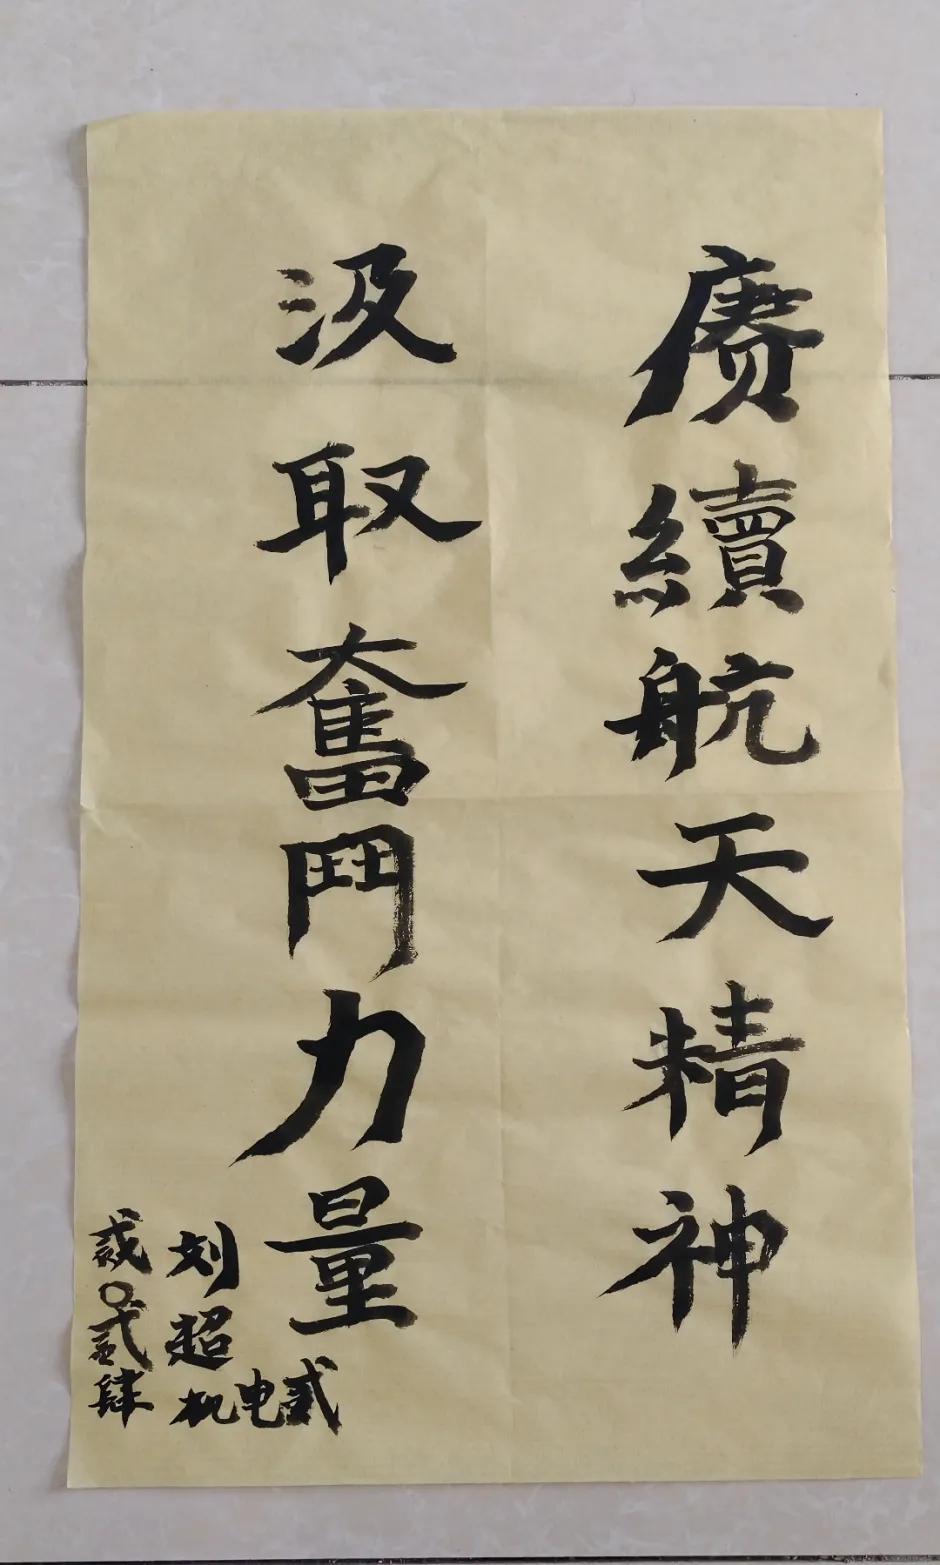 赓續航天精神
汲取奮鬥力量
刘超
机电贰
贰〇贰肆